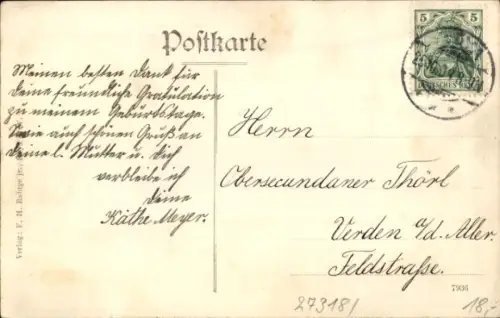 Postkarte
5
DEUTSCHES REICH
Meinen besten Dank für
Deine freundliche Gratulation
zu meinem Geburtstage.
Sowie auch schönen Gruß an
Deine l. Mutter u. Dich
verbleibe ich
Deine
Käthe Meyer.
Herrn
Obersecundaner Thörl
Verden a/d. Aller.
Feldstraße.
Verlag: F. H.
7936
27318/
18,-